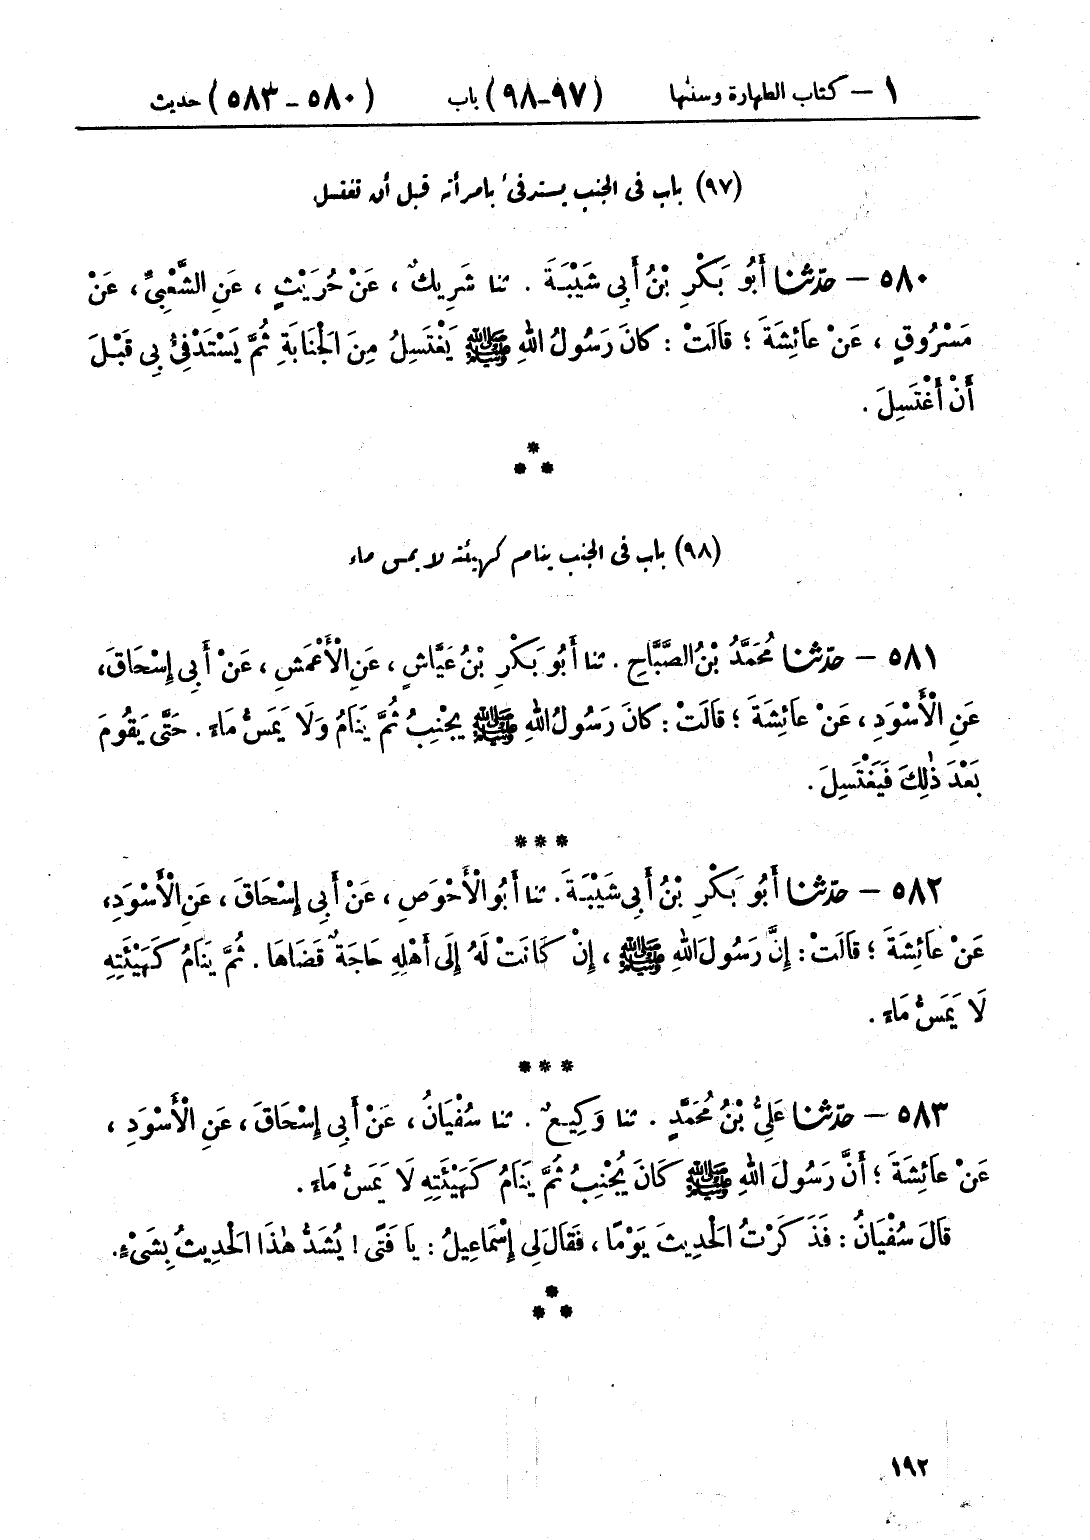 ١ – كتاب الطهارة وسننها (٩٧-٩٨) باب (٥٨٠ – ٥٨٣) حديث
(٩٧) باب فى الجنب يستدفئ بامرأته قبل أن تغتسل
٥٨٠ – حدّثنا أَبُو بَكْرِ بْنُ أَبِى شَيْبَةَ . ثنا شَرِيكٌ ، عَنْ حُرَيْثٍ ، عَنِ الشَّعْبِىِّ ، عَنْ
مَسْرُوقٍ ، عَنْ عَائِشَةَ ؛ قَالَتْ : كَانَ رَسُولُ اللهِ ﷺ يَغْتَسِلُ مِنَ الْجَنَابَةِ ثُمَّ يَسْتَدْفِئُ بِى قَبْلَ
أَنْ أَغْتَسِلَ .
*
* *
(٩٨) باب فى الجنب ينام كهيئته لا يمس ماء
٥٨١ – حدّثنا مُحَمَّدُ بْنُ الصَّبَّاحِ . ثنا أَبُو بَكْرِ بْنُ عَيَّاشٍ ، عَنِ الْأَعْمَشِ ، عَنْ أَبِى إِسْحَاقَ،
عَنِ الْأَسْوَدِ ، عَنْ عَائِشَةَ ؛ قَالَتْ : كَانَ رَسُولُ اللهِ ﷺ يُجْنِبُ ثُمَّ يَنَامُ وَلَا يَمَسُّ مَاءً . حَتَّى يَقُومَ
بَعْدَ ذٰلِكَ فَيَغْتَسِلَ .
* * *
٥٨٢ – حدّثنا أَبُو بَكْرِ بْنُ أَبِى شَيْبَةَ . ثنا أَبُو الْأَحْوَصِ ، عَنْ أَبِى إِسْحَاقَ ، عَنِ الْأَسْوَدِ،
عَنْ عَائِشَةَ ؛ قَالَتْ : إِنَّ رَسُولَ اللهِ ﷺ ، إِنْ كَانَتْ لَهُ إِلَى أَهْلِهِ حَاجَةٌ قَضَاهَا . ثُمَّ يَنَامُ كَهَيْئَتِهِ
لَا يَمَسُّ مَاءً .
* * *
٥٨٣ – حدّثنا عَلِىُّ بْنُ مُحَمَّدٍ . ثنا وَكِيعٌ . ثنا سُفْيَانُ ، عَنْ أَبِى إِسْحَاقَ ، عَنِ الْأَسْوَدِ ،
عَنْ عَائِشَةَ ؛ أَنَّ رَسُولَ اللهِ ﷺ كَانَ يُجْنِبُ ثُمَّ يَنَامُ كَهَيْئَتِهِ لَا يَمَسُّ مَاءً .
قَالَ سُفْيَانُ : فَذَكَرْتُ الْحَدِيثَ يَوْمًا ، فَقَالَ لِى إِسْمَاعِيلُ : يَا فَتَى ! يُشَدُّ هٰذَا الْحَدِيثُ بِشَىْءٍ.
*
* *
١٩٢